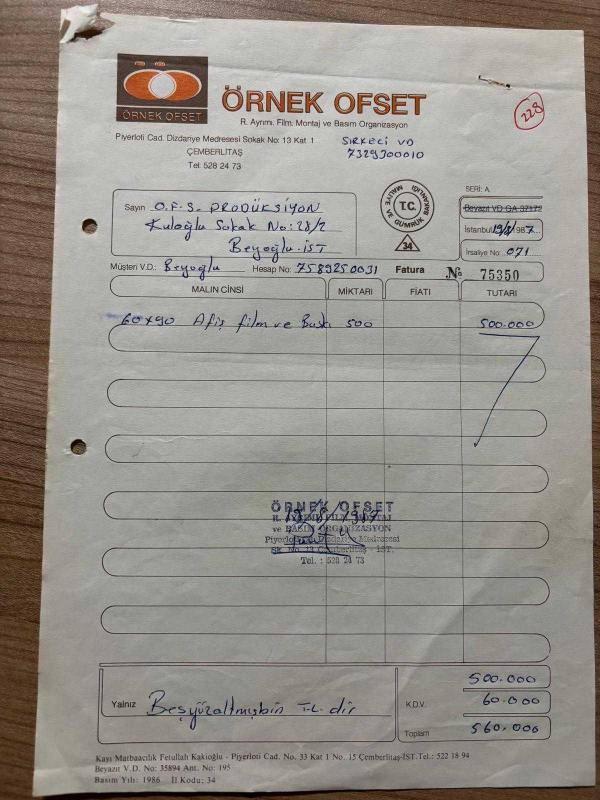 ÖRNEK OFSET
ÖRNEK OFSET
R. Ayrımı. Film. Montaj ve Basım Organizasyon
228
Piyerloti Cad. Dizdariye Medresesi Sokak No: 13 Kat 1
ÇEMBERLİTAŞ
Tel: 528 24 73
SİRKECİ VD
7329300010
SERİ: A
Beyazıt VD GA 37172
Sayın O.F.S. PRODÜKSİYON
Kuloğlu Sokak No: 28/2
Beyoğlu-İST
T.C. MALİYE VE GÜMRÜK BAKANLIĞI
34
İstanbul 19/8/1987
İrsaliye No: 071
Müşteri V.D.: Beyoğlu Hesap No: 7589250031 Fatura № 75350
MALIN CİNSİ MİKTARI FİATI TUTARI
60x90 Afiş film ve Baskı 500 500.000
ÖRNEK OFSET
R. AYRIMI FİLM MONTAJ
ve BASIM ORGANİZASYON
Piyerloti Cad. Dizdariye Medresesi
Sk. No. 13 Çemberlitaş - İST.
Tel. : 528 24 73
500.000
Yalnız Beşyüzaltmışbin T.L. dir
K.D.V. 60.000
Toplam 560.000
Kayı Matbaacılık Fetullah Kakioğlu - Piyerloti Cad. No. 33 Kat 1 No. 15 Çemberlitaş-İST.Tel.: 522 18 94
Beyazıt V.D. No: 35894 Ant. No: 195
Basım Yılı: 1986 İl Kodu: 34